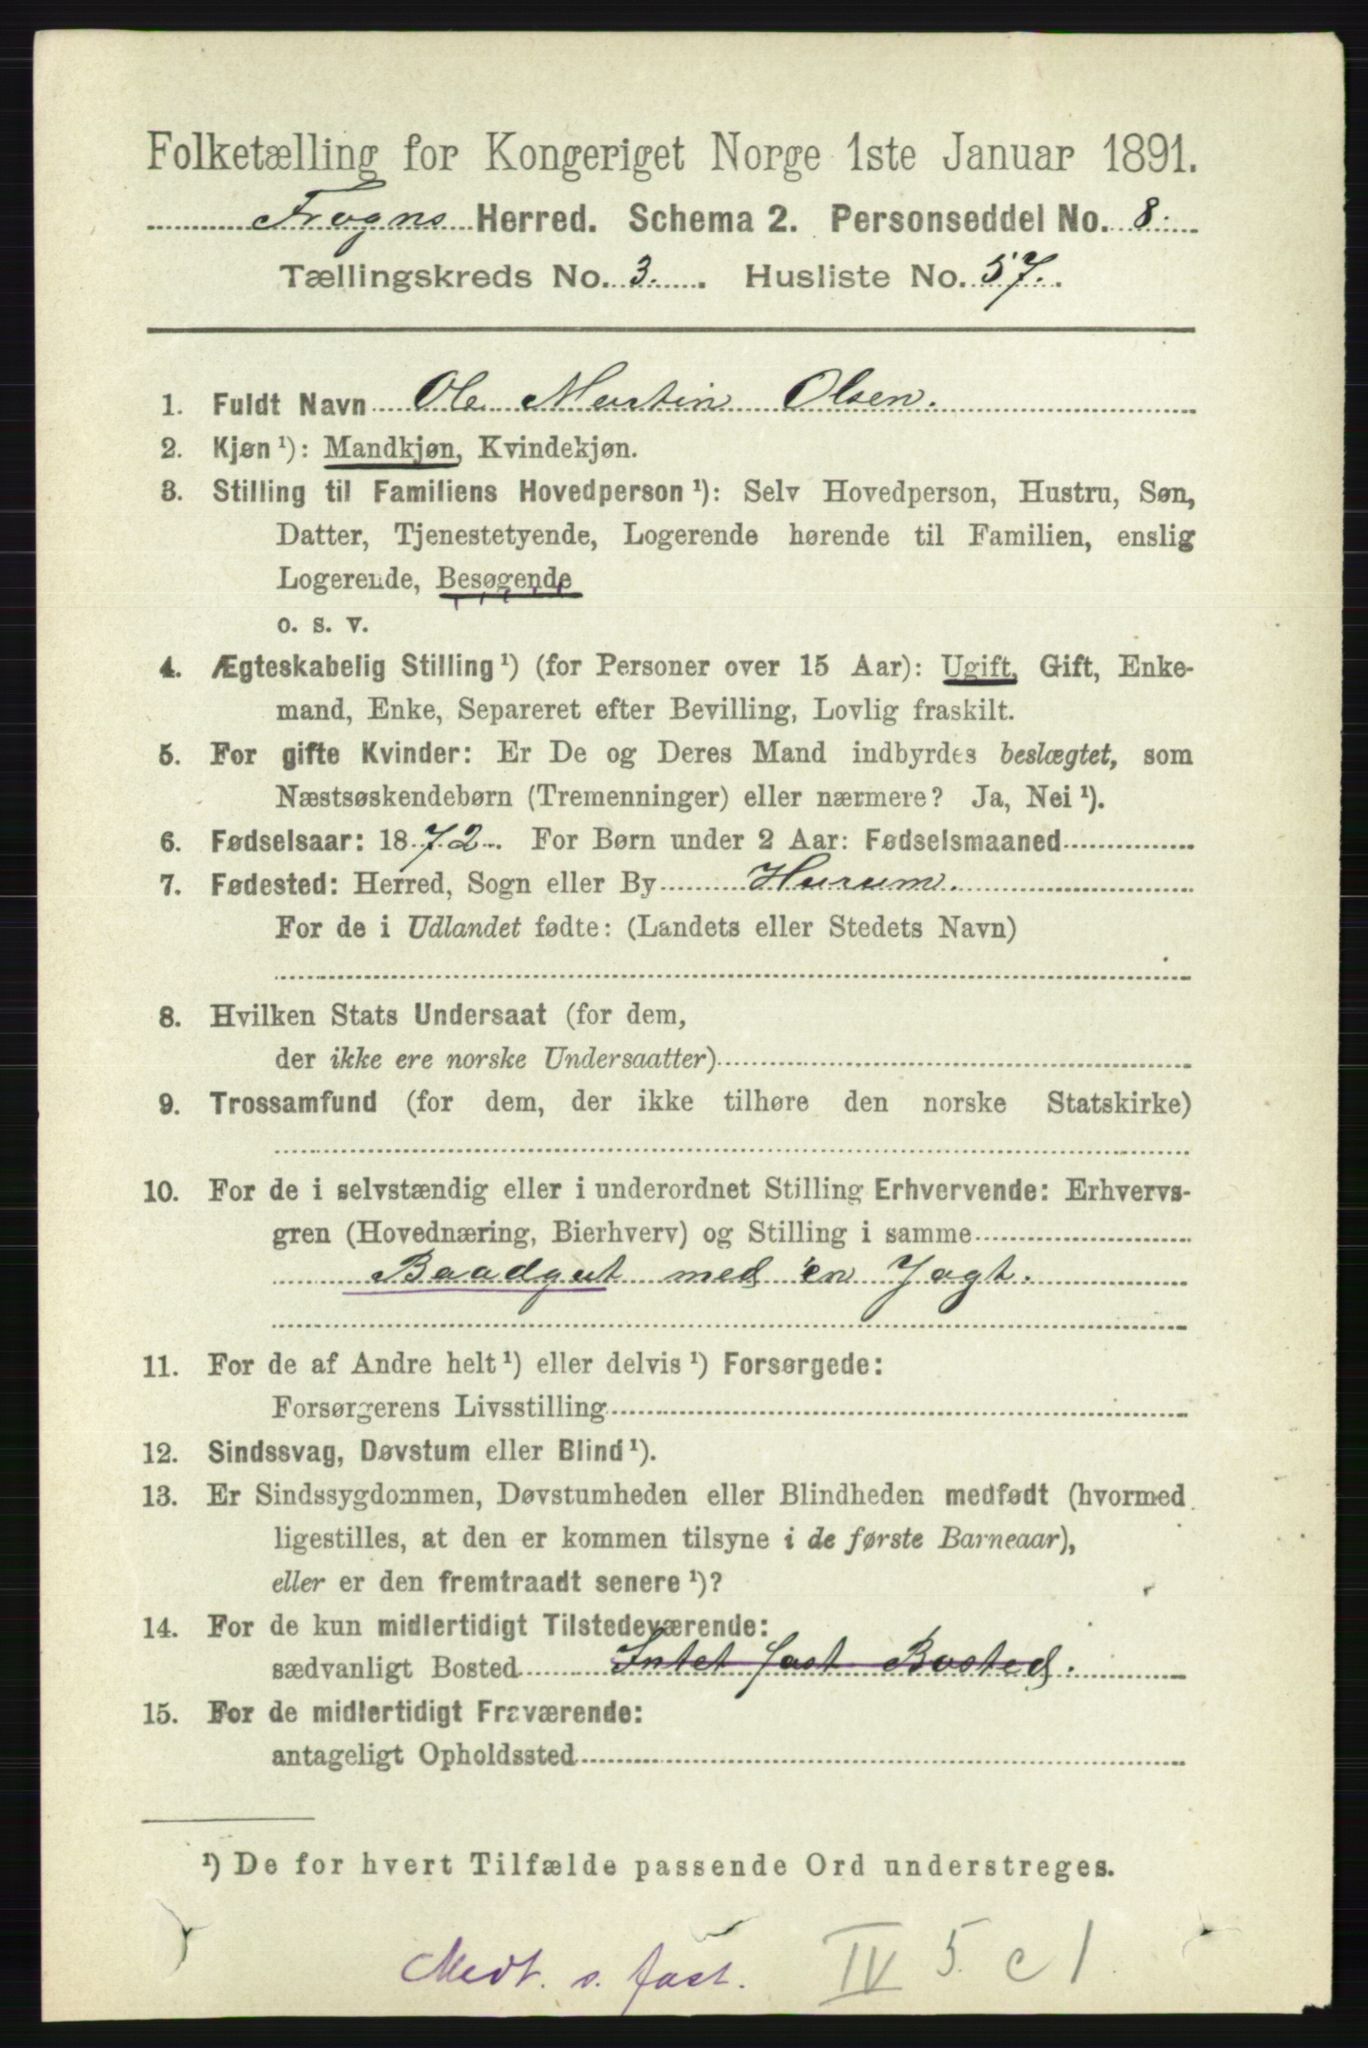 Folketælling for Kongeriget Norge 1ste Januar 1891.
Frogns Herred. Schema 2. Personseddel No. 8.
Tællingskreds No. 3. Husliste No. 57.
1. Fuldt Navn Ole Martin Olsen.
2. Kjøn¹): Mandkjøn, Kvindekjøn.
3. Stilling til Familiens Hovedperson¹): Selv Hovedperson, Hustru, Søn,
Datter, Tjenestetyende, Logerende hørende til Familien, enslig
Logerende, Besøgende
o. s. v.
4. Ægteskabelig Stilling¹) (for Personer over 15 Aar): Ugift, Gift, Enke-
mand, Enke, Separeret efter Bevilling, Lovlig fraskilt.
5. For gifte Kvinder: Er De og Deres Mand indbyrdes beslægtet, som
Næstsøskendebørn (Tremenninger) eller nærmere? Ja, Nei¹).
6. Fødselsaar: 1872. For Børn under 2 Aar: Fødselsmaaned
7. Fødested: Herred, Sogn eller By Hurum.
For de i Udlandet fødte: (Landets eller Stedets Navn)
8. Hvilken Stats Undersaat (for dem,
der ikke ere norske Undersaatter)
9. Trossamfund (for dem, der ikke tilhøre den norske Statskirke)
10. For de i selvstændig eller i underordnet Stilling Erhvervende: Erhvervs-
gren (Hovednæring, Bierhverv) og Stilling i samme
Baadgut med en Jagt.
11. For de af Andre helt¹) eller delvis¹) Forsørgede:
Forsørgerens Livsstilling
12. Sindssvag, Døvstum eller Blind¹).
13. Er Sindssygdommen, Døvstumheden eller Blindheden medfødt (hvormed
ligestilles, at den er kommen tilsyne i de første Barneaar),
eller er den fremtraadt senere¹)?
14. For de kun midlertidigt Tilstedeværende:
sædvanligt Bosted Intet fast Bosted.
15. For de midlertidigt Fraværende:
antageligt Opholdssted
¹) De for hvert Tilfælde passende Ord understreges.
Medt. s. fast. IV 5. c 1